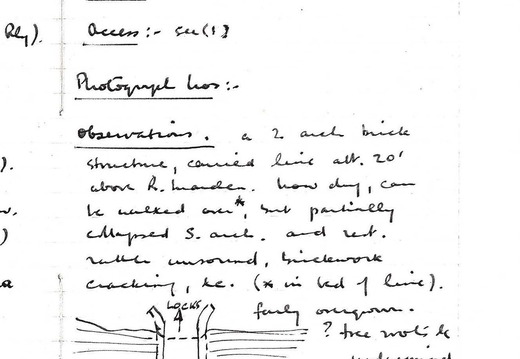 Rly).
Access:- see (1)
Photograph Nos:-
Observations. a 2 arch brick
). structure, carried line abt. 20'
above R. Marden. Now dry, can
be walked over*, but partially
) collapsed S. arch. and rest.
rather unsound, brickwork
a cracking, &c. (* in bed of line).
LOCKS
fairly overgrown.
? tree roots &